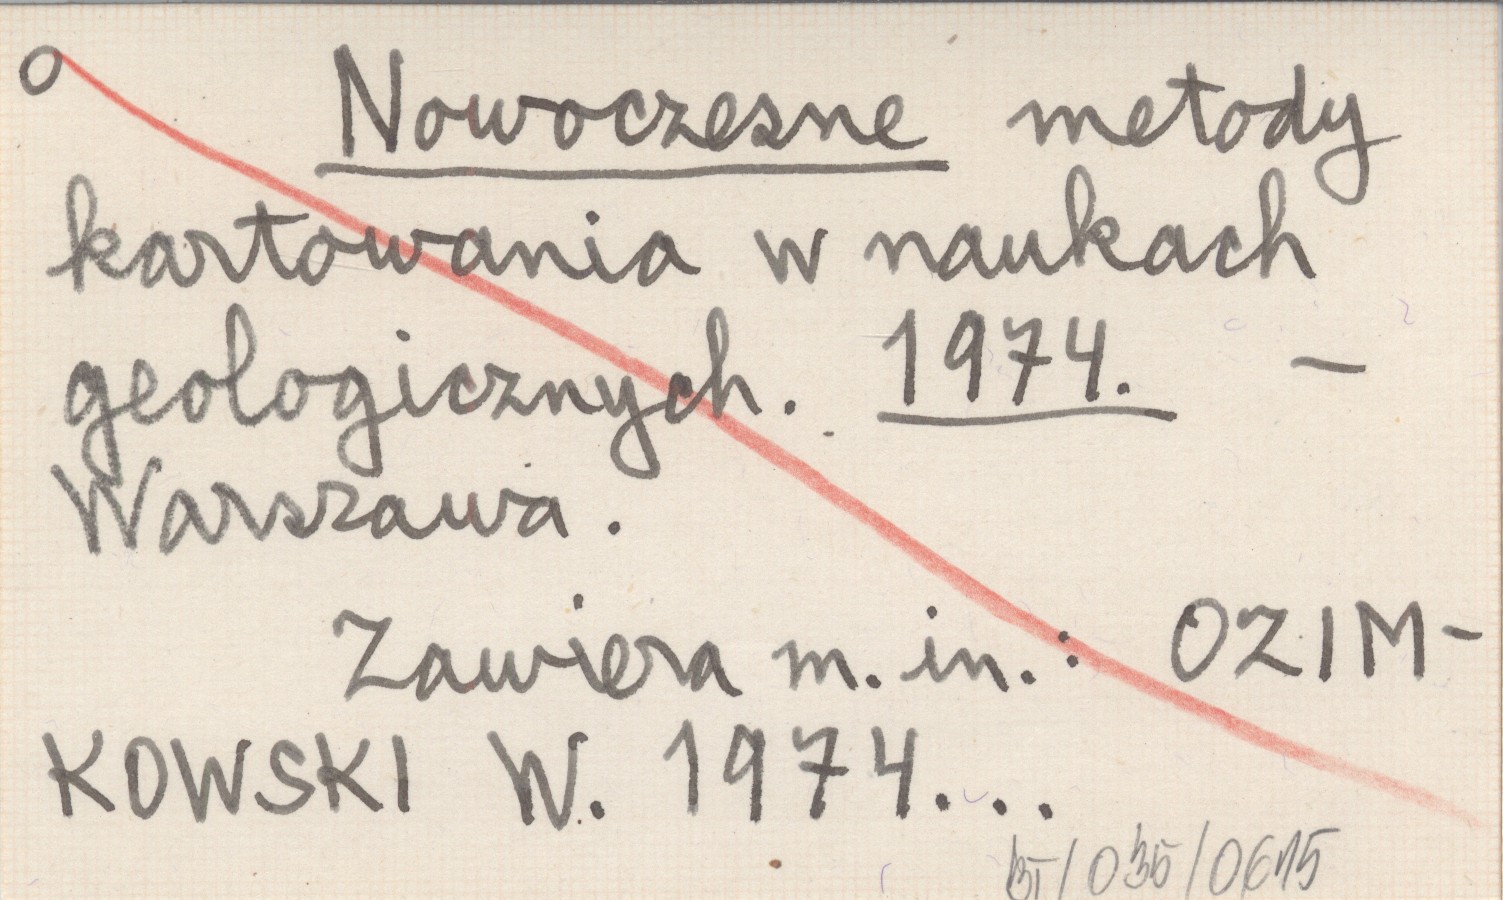 O Nowoczesne metody
kartowania w naukach
geologicznych. 1974. —
Warszawa.
Zawiera m. in.: OZIM-
KOWSKI W. 1974...
/035/0615